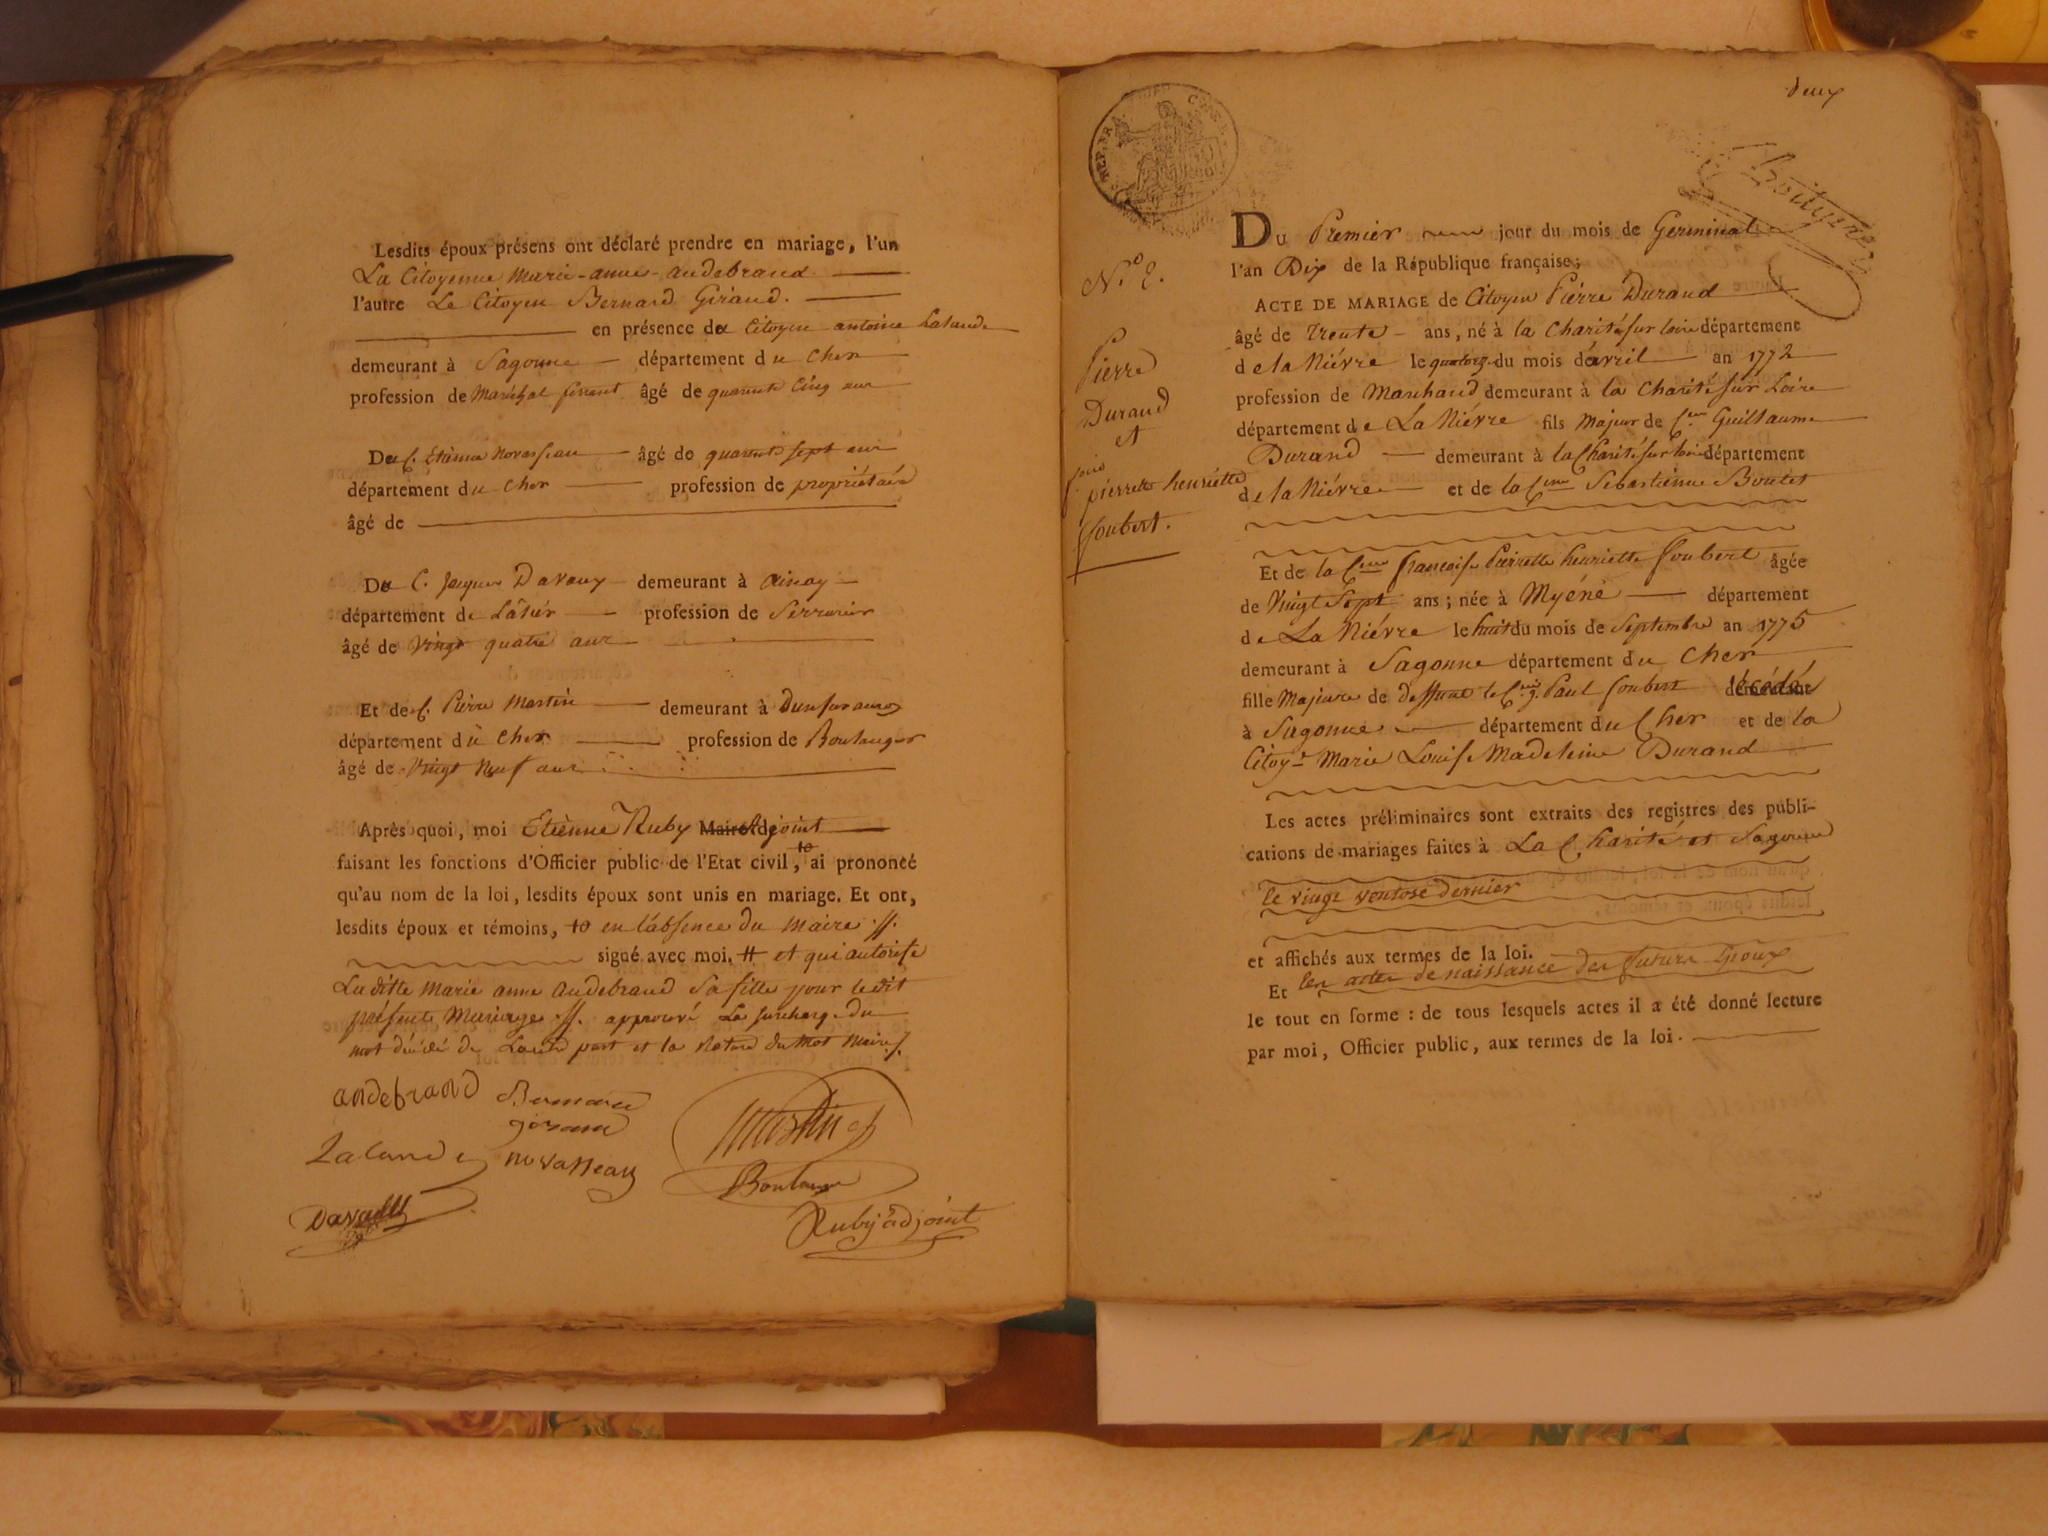 Lesdits époux présens ont déclaré prendre en mariage, l'un
La Citoyenne Marie-anne andebrand
l'autre Le Citoyen Bernard Giraud.
en présence de Citoyen antoine Lalande
demeurant à Sagonne département du Cher
profession de Maréchal ferrant âgé de quarante Cinq ans
De C. Etienne Novasseau âgé de quarante sept ans
département du Cher profession de propriétaire
âgé de
De C. Jacques Davaux demeurant à ainay
département de profession de Serrurier
âgé de Vingt quatre ans
Et de C. Pierre Martin demeurant à Dun sur auron
département du Cher profession de Boulanger
âgé de Vingt Neuf ans
Après quoi, moi Etienne Ruby Maire adjoint
faisant les fonctions d'Officier public de l'Etat civil, ai prononcé
qu'au nom de la loi, lesdits époux sont unis en mariage. Et ont,
lesdits époux et témoins, en l'absence du Maire
signé avec moi. # et qui autorise
La ditte Marie anne andebrand Sa fille pour le dit
présent Mariage approuvé La surcharge du
mot de Lautre part et la Rature du Mot Maire
andebrand Bernard
giraud
martin
Lalande novasseau
Boulanger
Davaux
Ruby adjoint
deux
REP. FRA.
Du Premier jour du mois de Germinal
l'an Dix de la République française;
N.o 2.
ACTE DE MARIAGE de Citoyen Pierre Durand
âgé de Trente ans, né à la Charité sur loire département
de la Niévre le quatorze du mois d'avril an 1772
Pierre
Durand
et
pierrette henriette
Joubert.
profession de Marchand demeurant à la Charité sur Loire
département de La Niévre fils Majeur de C.en Guillaume
Durand demeurant à la Charité sur loire département
de la Niévre et de la C.enne Sebastienne Boutet
Et de la C.enne françoise Pierrette henriette Joubert âgée
de Vingt Sept ans; née à Myéné département
de La Niévre le huit du mois de Septembre an 1775
demeurant à Sagonne département du Cher
fille Majeure de deffunt le C.en Paul Joubert décédé
à Sagonne département du Cher et de la
Citoy.e Marie Louise Madeleine Durand
Les actes préliminaires sont extraits des registres des publi-
cations de mariages faites à La Charité et Sagonne
le vingt ventose dernier
et affichés aux termes de la loi.
Et les actes de naissance des futurs Epoux
le tout en forme : de tous lesquels actes il a été donné lecture
par moi, Officier public, aux termes de la loi.